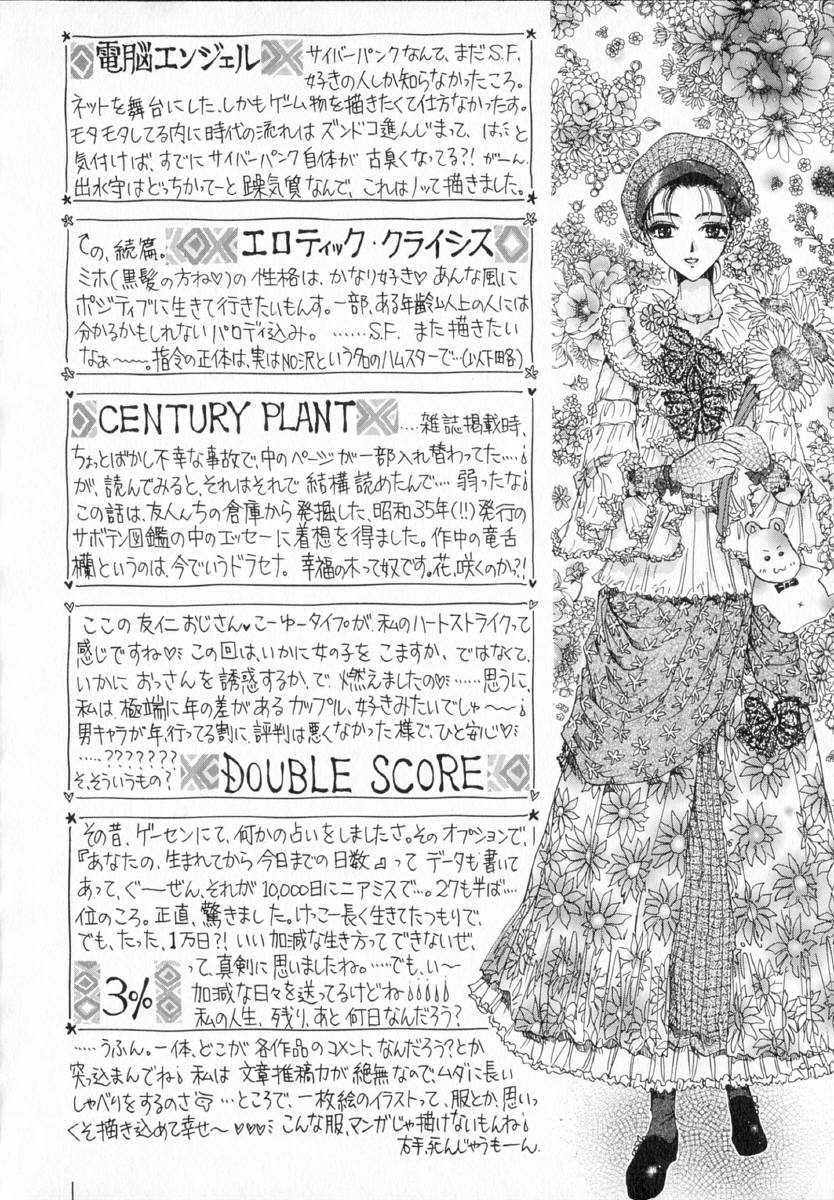 電脳エンジェル
サイバーパンクなんて、まだS.F.
好きの人しか知らなかったころ。
ネットを舞台にした、しかもゲーム物を描きたくて仕方なかったす。
モタモタしてる内に時代の流れは ズンドコ進んじまって、はっと
気付けば、すでに サイバーパンク自体が 古臭くなってる?! がーん。
出水守はどっちかってーと 躁気質なんで、これはノッて描きました。
この、続篇。 エロティック・クライシス
ミホ(黒髪の方ね♡)の 性格は、かなり好き♡ あんな風に
ポジティブに生きて行きたいもんす。一部、ある年齢以上の人には
分かるかもしれない パロディ込み。 ……S.F. また描きたい
なぁ〜〜。指令の正体は、実はNO沢という名のハムスターで…(以下略)
CENTURY PLANT ….雑誌掲載時、
ちょっとばかし不幸な事故で、中のページが一部入れ替わってた…
が、読んでみると、それはそれで 結構読めたんで… 弱ったな
この話は、友人んちの倉庫から発掘した、昭和35年(!!)発行の
サボテン図鑑の中のエッセーに着想を得ました。作中の竜舌
蘭というのは、今でいうドラセナ。幸福の木って奴です。花、咲くのか?!
ここの 友仁 おじさん♥こーゆータイプが、私のハートストライクって
感じですね♡ この回は、いかに女の子を こますか、ではなくて、
いかに おっさんを誘惑するか、で 燃えましたの♡……思うに、
私は、極端に年の差がある カップル、好きみたいでしゅ〜〜
男キャラが年行ってる割に、評判は悪くなかった様で、ひと安心♡
……???????
そ、そういうもの? DOUBLE SCORE
その昔、ゲーセンにて、何かの占いをしましたさ。そのオプションで、
『あなたの、生まれてから今日までの日数』って データも書いて
あって、ぐーぜん、それが 10,000日にニアミスで…。27も半ば…
位のころ。正直、驚きました。けっこー長く生きてたつもりで、
でも、たった、1万日?! いい加減な生き方って できないぜ、
3%
って、真剣に思いましたね。……でも、い〜
加減な日々を送ってるけどね
私の人生、残り、あと何日なんだろう?
……うふん。一体、どこが 各作品のコメント、なんだろう?とか
突っ込まんでね 私は 文章推稿力が絶無なので、ムダに長い
しゃべりをするのさ …ところで、一枚絵のイラストって、服とか、思いっ
くそ描き込めて幸せ〜 ♡♡♡ こんな服、マンガじゃ描けないもんね
右手、死んじゃうもーん。